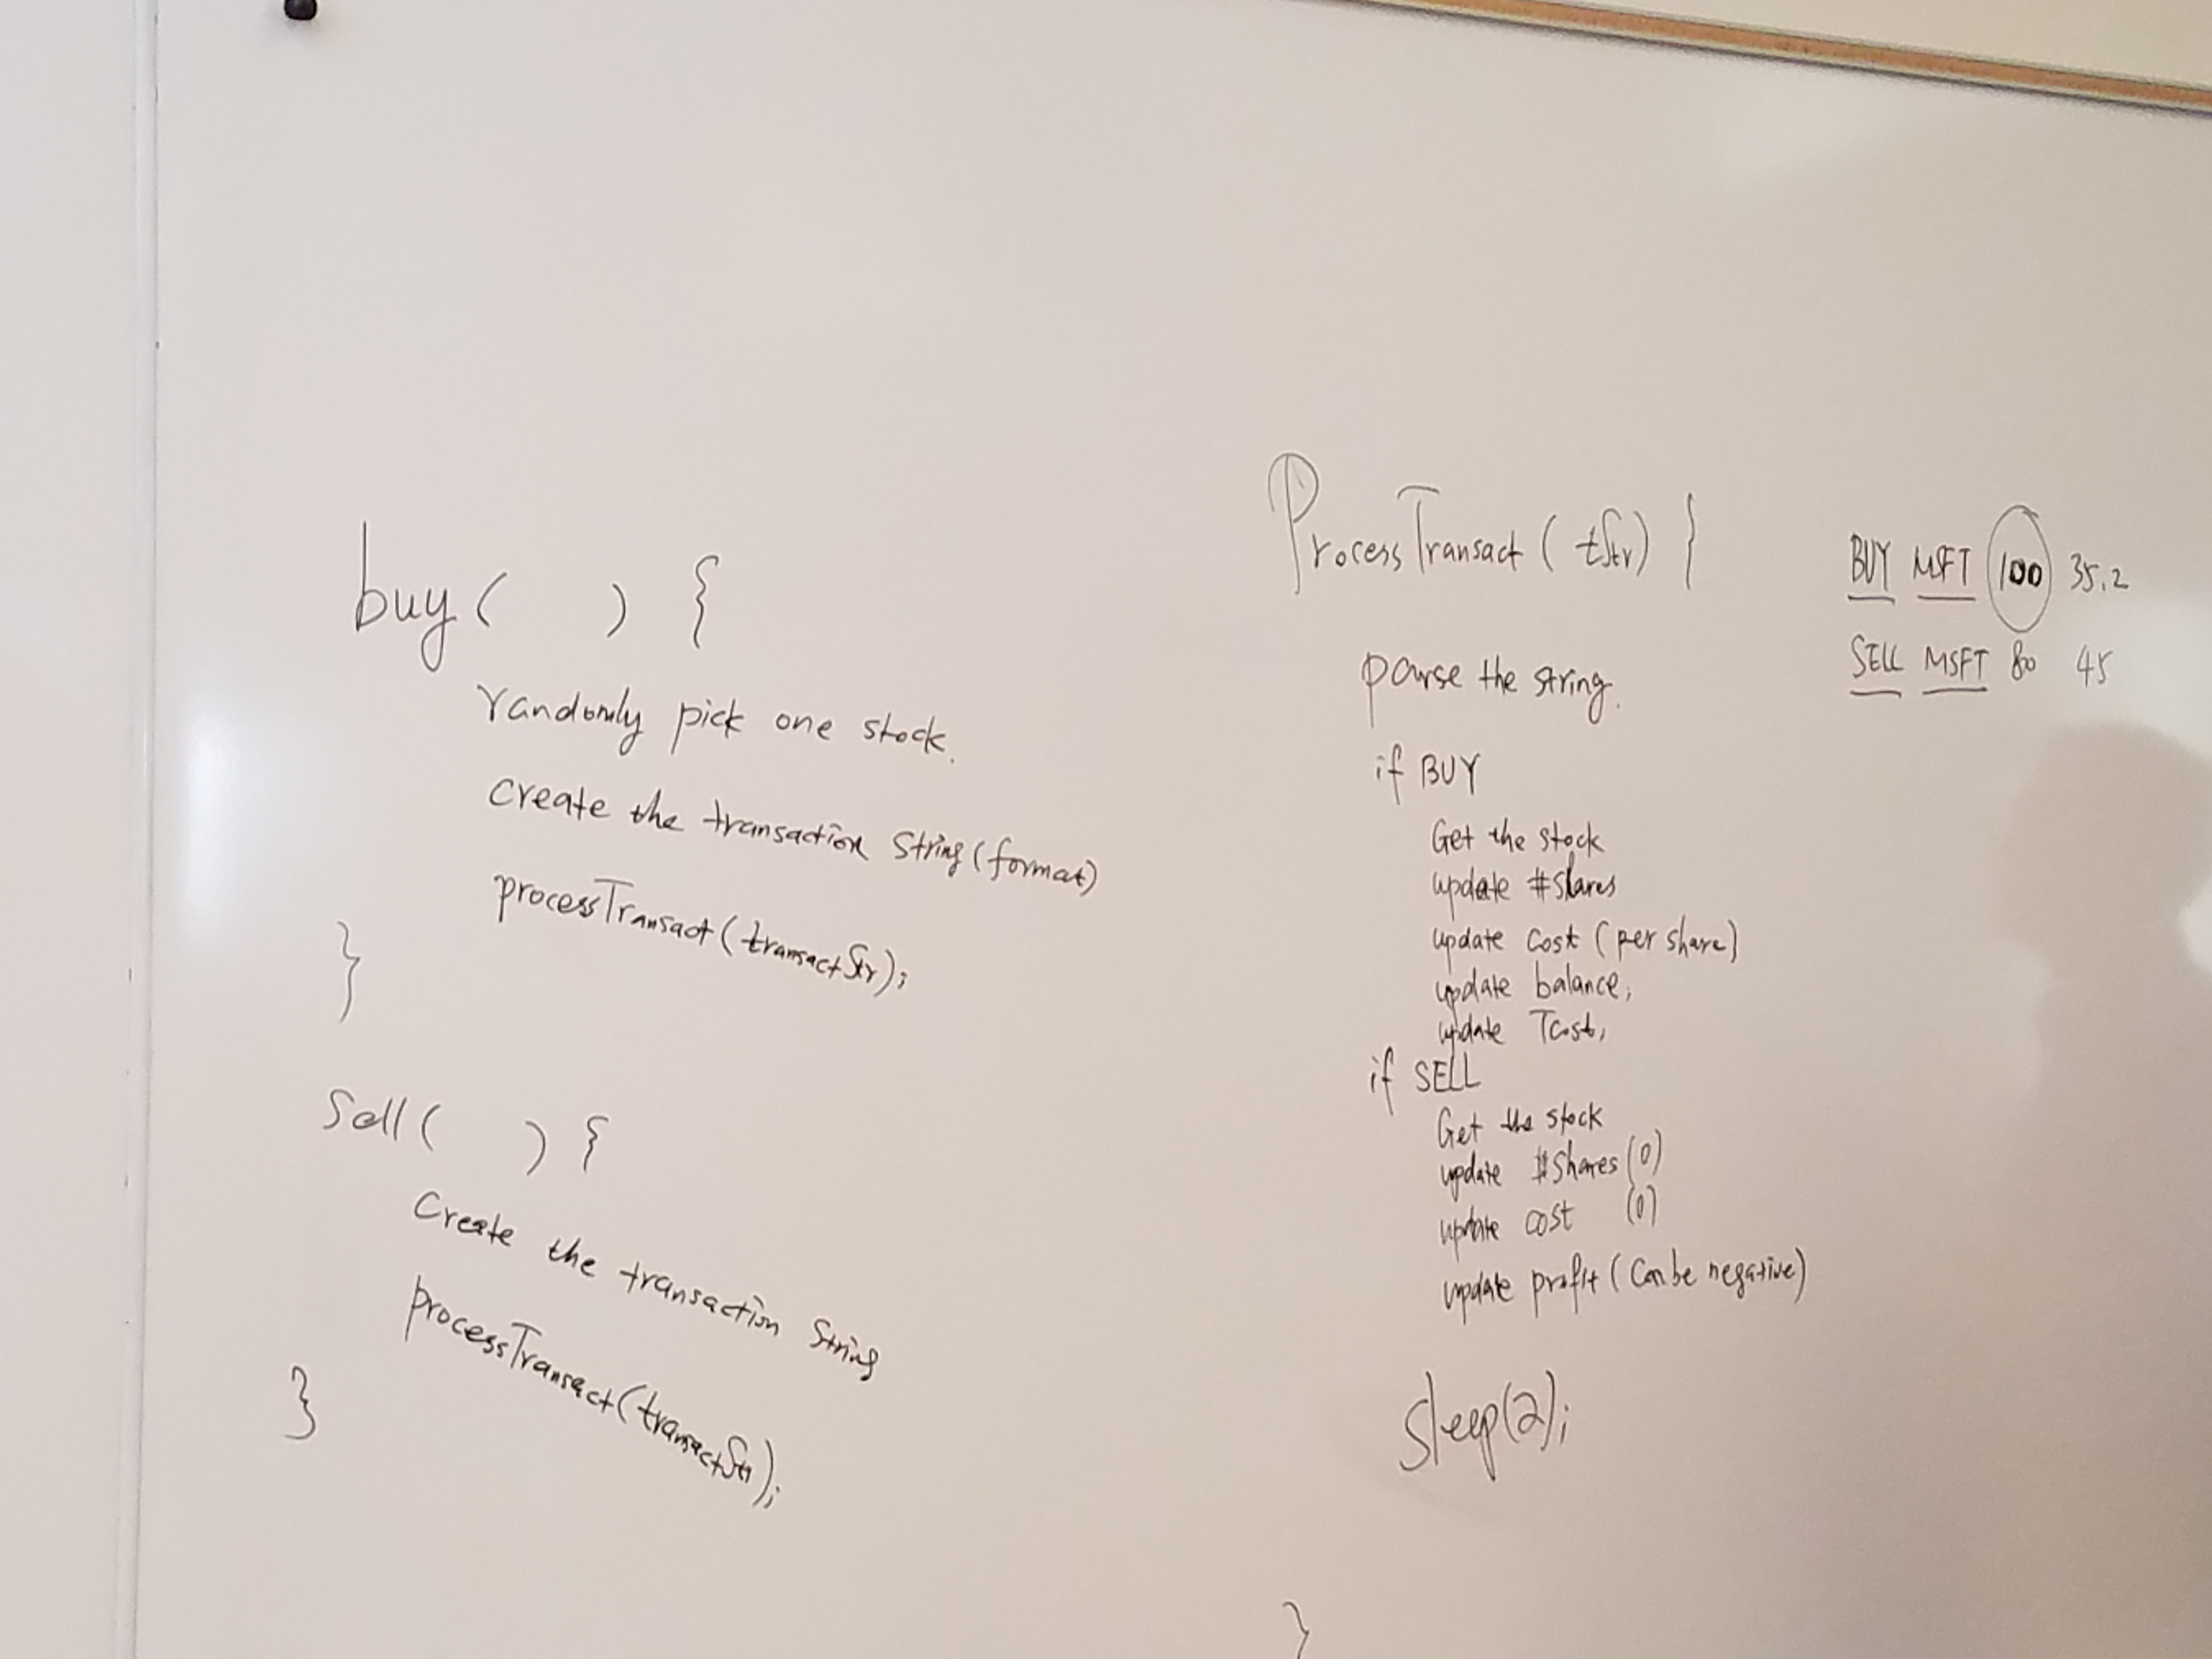 buy( ) {
randomly pick one stock.
create the transaction String (format)
processTransact(transactStr);
}
Sell( ) {
Create the transaction String
processTransact(transactStr);
}
ProcessTransact(tStr) {
parse the string.
if BUY
Get the stock
update #shares
update cost (per share)
update balance;
update Tcost;
if SELL
Get the stock
update #shares (0)
update cost (0)
update profit (Can be negative)
Sleep(2);
}
BUY MSFT 100 35.2
SELL MSFT 80 45